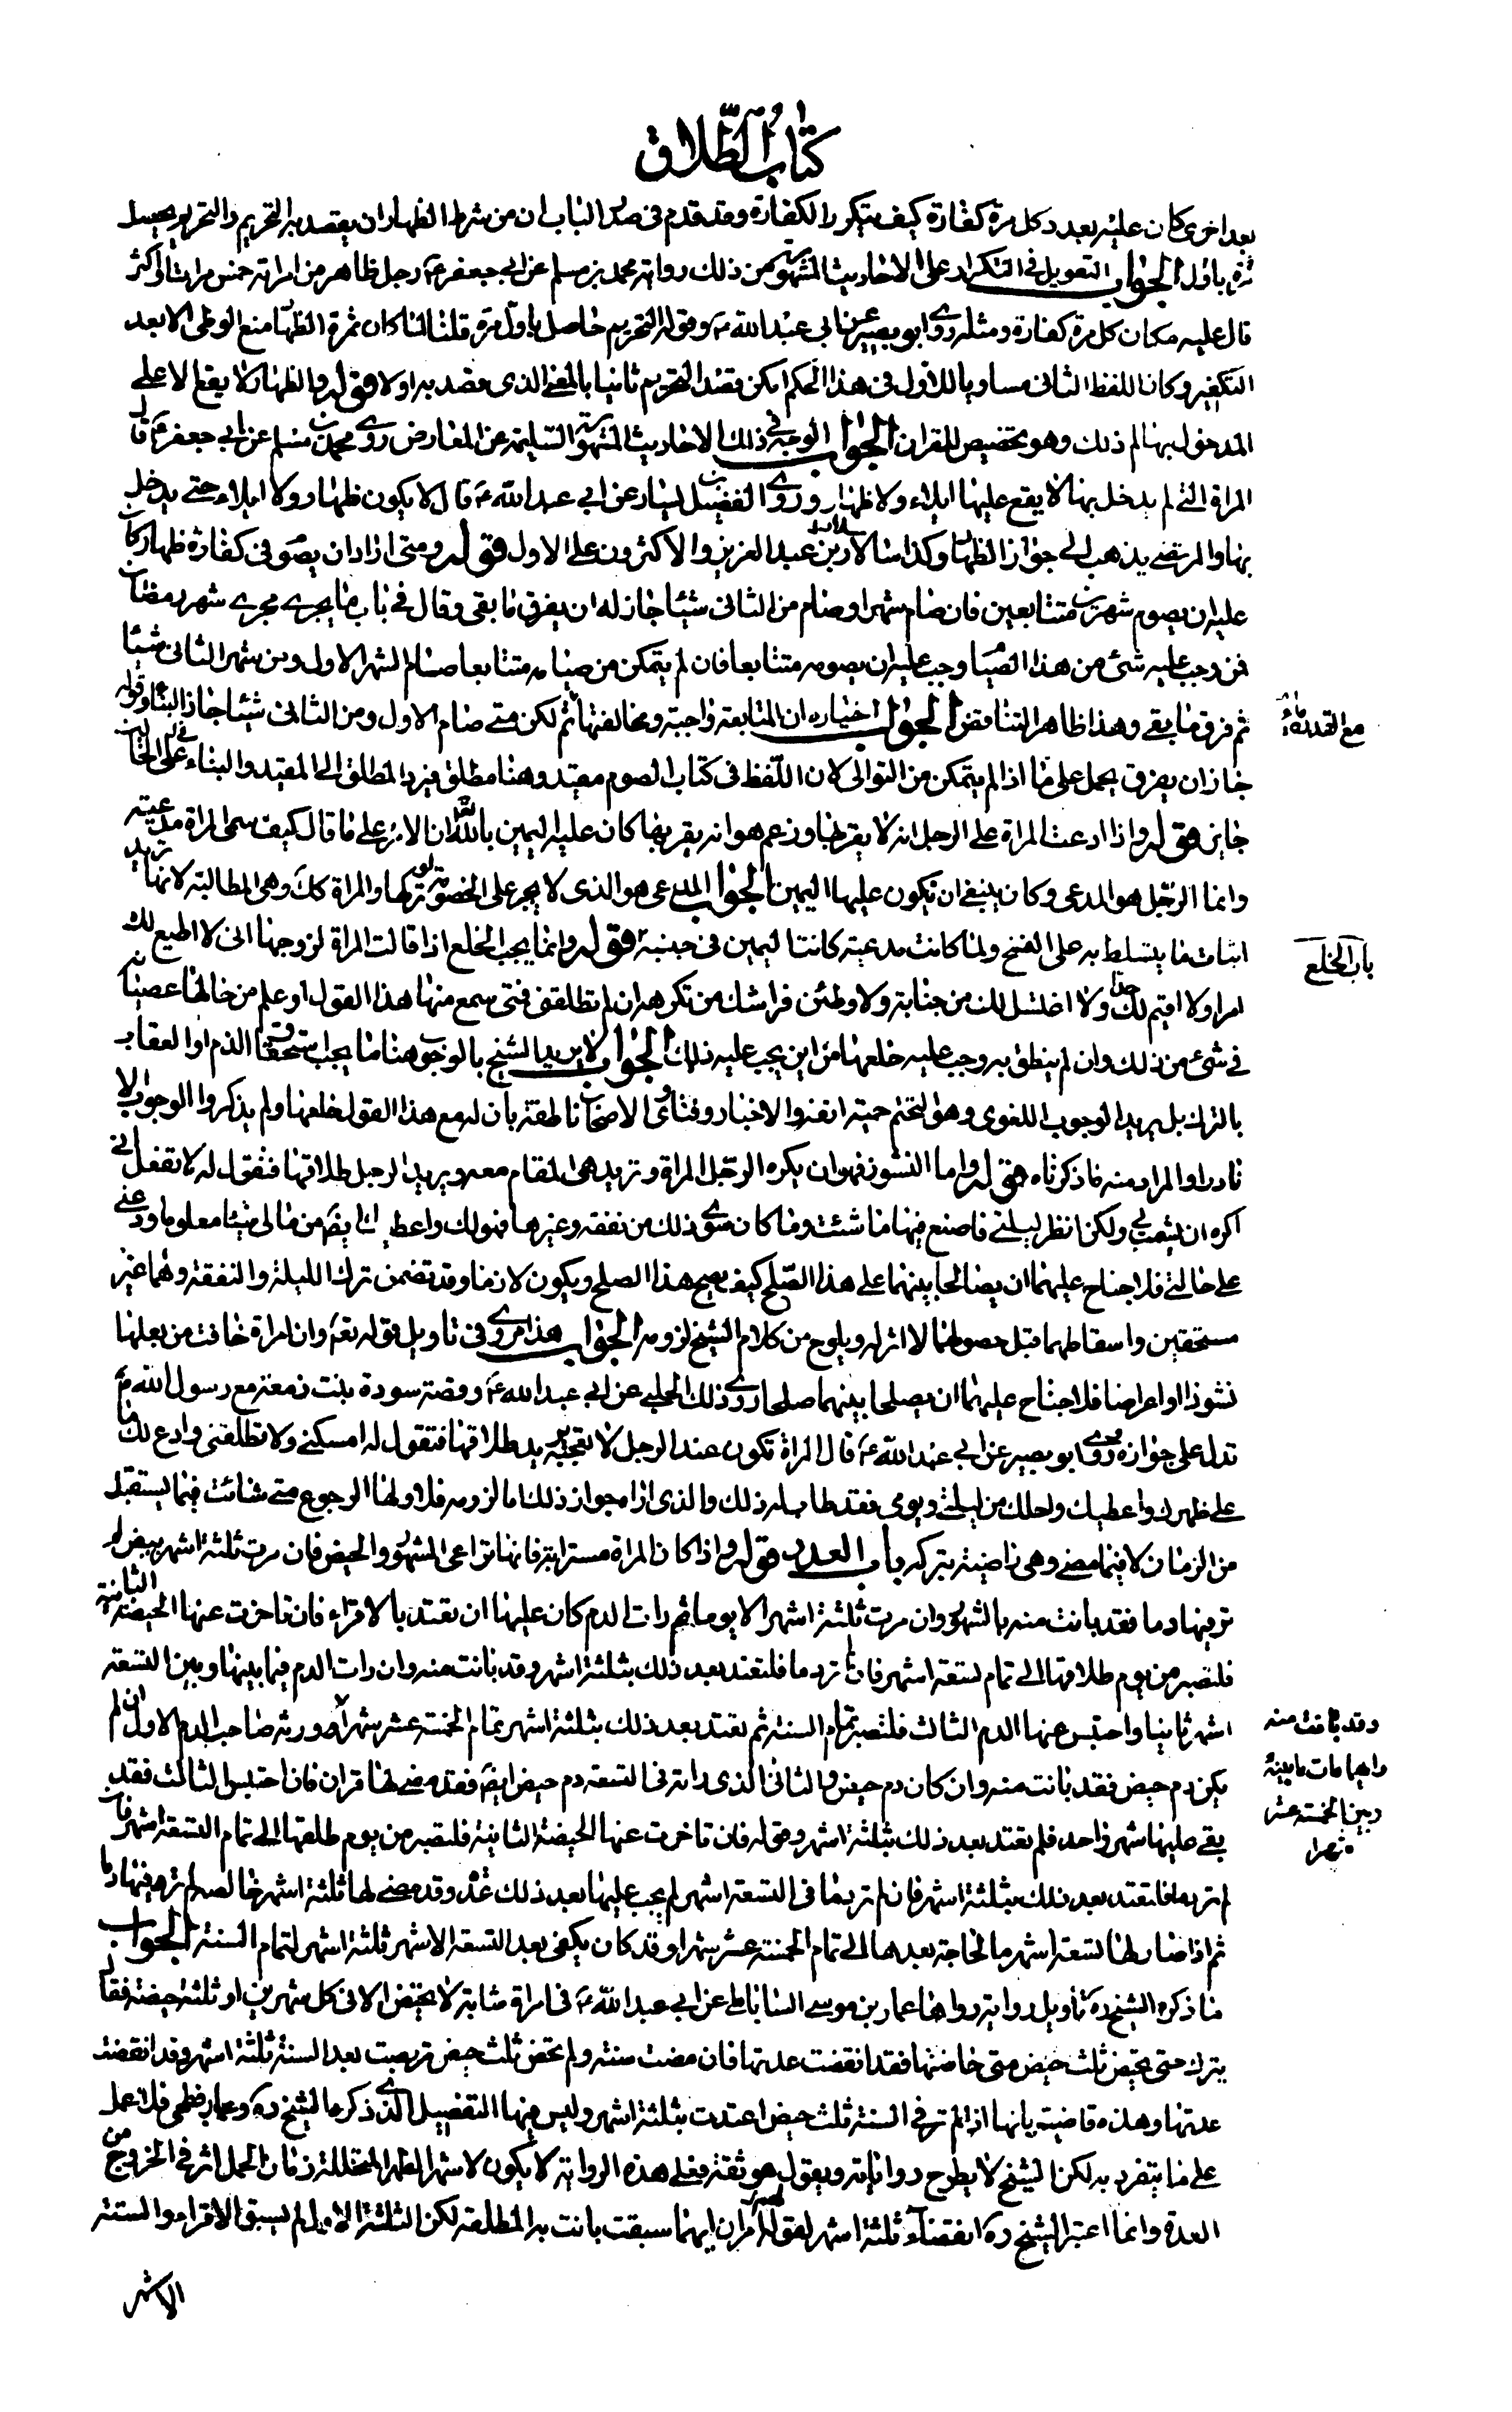 كتاب الطلاق
بعد اخرى كان عليه بعدد كل مرة كفارة كيف يتكرر الكفارة وقد قدم فى صدر الباب ان من شرط الظهار ان يقصد به التحريم والتحريم يحصل
مرة باول الجواب التعويل فى التكرار على الاحاديث المشهورة من ذلك رواية محمد بن مسلم عن ابي جعفر ع رجل ظاهر من امراته خمس مرات او اكثر
قال عليه مكان كل مرة كفارة ومثله روى ابو بصير عن ابي عبد الله ع وقوله التحريم حاصل باول مرة قلنا لما كان ثمرة الظهار منع الوطى الا بعد
التكفير وكان اللفظ الثانى مساويا للاول فى هذا الحكم امكن قصد التحريم ثانيا بالمعنى الذى قصد به اولا قوله والظهار لا يقع الا على
المدخول بها لم ذلك وهو تخصيص للقران الجواب الوجه فى ذلك الاحاديث المشهورة السليمة عن المعارض روى محمد بن مسلم عن ابي جعفر ع قال
المراة التى لم يدخل بها لا يقع عليها ايلاء ولا ظهار وروى الفضيل بن يسار عن ابي عبد الله ع قال لا يكون ظهار ولا ايلاء حتى يدخل
بها والمرتضى يذهب الى جواز الظهار وكذا سالار بن عبد العزيز والاكثرون على الاول قوله ومتى اراد ان يصوم فى كفارة ظهار كان
عليه ان يصوم شهرين متتابعين فان صام شهرا وصام من الثانى شيئا جاز له ان يفرق ما بقى وقال فى باب ما يجرى مجرى شهر رمضان
فمن وجب عليه شئ من هذا الصيام وجب عليه ان يصومه متتابعا فان لم يتمكن من صيامه متتابعا صام الشهر الاول ومن شهر الثانى شيئا
ثم فرق ما بقى وهذا ظاهر التناقض الجواب اختياره ان المتابعة واجبة ومخالفتها اثم لكن متى صام الاول ومن الثانى شيئا جاز البناء وقوله
مع القدرة
جاز ان يفرق يحمل على ما اذا لم يتمكن من التوالى لان اللفظ فى كتاب الصوم مقيد وهنا مطلق فيرد المطلق الى المقيد والبناء على الحالين
جايز قوله واذا ادعت المراة على الرجل انه لا يقربها وزعم هو انه يقربها كان عليه اليمين بالله ان الامر على ما قال كيف سمى المراة مدعية
وانما الرجل هو المدعى وكان ينبغى ان يكون عليها اليمين الجواب المدعى هو الذى لا يجبر على الخصومة لو تركها والمراة كك وهى المطالبة لانها تريد
اثبات ما يتسلط به على الفسخ ولما كانت مدعية كانت اليمين فى جنبته قوله وانما يجب الخلع اذا قالت المراة لزوجها انى لا اطيع لك
باب الخلع
امرا ولا اقيم لك حدا ولا اغتسل لك من جنابة ولاوطئن فراشك من تكرهه ان لم تطلقنى فمتى سمع منها هذا القول او علم من حالها عصيانه
فى شئ من ذلك وان لم ينطق به وجب عليه خلعها من اين يجب عليه ذلك الجواب لا يريد الشيخ بالوجوب هنا ما يجب استحقاق الذم او العقاب
بالترك بل يريد الوجوب اللغوى وهو التحتم حيث انفذوا الاخبار وفتاوى الاصحاب ناطقة بان له مع هذا القول خلعها ولم يذكروا الوجوب الا
نادرا والمراد منه ما ذكرناه قوله واما النشوز فهو ان يكره الرجل المراة وتريد هى المقام معه ويريد الرجل طلاقها فتقول له لا تفعل انى
اكره ان يشمت بى ولكن انظر ليلتى فاصنع فيها ما شئت وما كان سوى ذلك من نفقة وغيرها فهو لك واعطيك ايضا من مالى شيئا معلوما ودعنى
على حالتى فلا جناح عليهما ان يصالحا بينهما على هذا الصلح كيف يصح هذا الصلح ويكون لازما وقد تضمن ترك الليلة والنفقة وهما غير
مستحقين واسقاطهما قبل حصولهما لا اثر له ويلوح من كلام الشيخ لزومه الجواب هذا مروى فى تاويل قوله تعم وان امراة خافت من بعلها
نشوزا او اعراضا فلا جناح عليهما ان يصلحا بينهما صلحا روى ذلك الحلبي عن ابي عبد الله ع وقصة سودة بنت زمعة مع رسول الله ص
تدل على جوازه وروى ابو بصير عن ابي عبد الله ع قال المراة تكون عند الرجل لا تعجبه يريد طلاقها فتقول له امسكنى ولا تطلقنى وادع لك ما
على ظهرك واعطيك واحلك من ليلتى ويومى فقد طاب له ذلك والذى اراه جواز ذلك اما لزومه فلا ولها الرجوع متى شائت فيما يستقبل
من الزمان لا فيما مضى وهى راضية بتركه باب العدد قوله واذا كان المراة مسترابة فانها تراعى الشهور والحيض فان مرت ثلثة اشهر بيض لم
تر فيها دما فقد بانت منه بالشهور وان مرت ثلثة اشهر الا يوما ثم رات الدم كان عليها ان تعتد بالاقراء فان تاخرت عنها الحيضة الثانية
فلتصبر من يوم طلاقها الى تمام تسعة اشهر فان لم تر دما فلتعتد بعد ذلك بثلثة اشهر وقد بانت منه وان رات الدم فيما بينها وبين التسعة
اشهر ثانيا واحتبس عنها الدم الثالث فلتصبر تمام السنة ثم تعتد بعد ذلك بثلثة اشهر تمام الخمسة عشر شهرا ورثه صاحبه الدم الاول ان لم
وقد بانت منه
وايهما مات ما بينه
وبين الخمسة عشر
شهرا
يكن دم حيض فقد بانت منه وان كان دم حيض والثانى الذى راته فى التسعة دم حيض ايضا فقد مضى لها قران فان احتبس الثالث فقد
بقى عليها شهر واحد فلم تعتد بعد ذلك بثلثة اشهر وقوله فان تاخرت عنها الحيضة الثانية فلتصبر من يوم طلقها الى تمام التسعة اشهر فان
لم تر دما فلتعتد بعد ذلك بثلثة اشهر فان لم تر دما فى التسعة اشهر لم يجب عليها بعد ذلك عدة وقد مضى لها ثلثة اشهر خالصة لم تر فيها دما
ثم اذا صار لها تسعة اشهر ما الحاجة بعدها الى تمام الخمسة عشر شهرا وقد كان يكفى بعد التسعة الاشهر ثلثة اشهر لتمام السنة الجواب
ما ذكره الشيخ ره تاويل رواية رواها عمار بن موسى الساباطى عن ابي عبد الله ع فى امراة شابة لا تحيض الا فى كل شهرين او ثلثة حيضة فقال
يترك حتى تحيض ثلث حيض متى حاضتها فقد انقضت عدتها فان مضت سنة ولم تحض ثلث حيض تربصت بعد السنة ثلثة اشهر وقد انقضت
عدتها وهذه قاضية بانها اذا لم تر فى السنة ثلث حيض اعتدت بثلثة اشهر وليس فيها التفصيل الذى ذكره الشيخ ره وعمار فطحى فلا عمل
على ما يتفرد به لكن الشيخ لا يطرح رواياته ويقول هو ثقة فعلى هذه الرواية لا يكون لاشهر الطهر المتخللة زمان الحمل اثر فى الخروج من
العدة وانما اعتبر الشيخ ره انقضاء ثلثة اشهر لقوله امران ايهما سبقت بانت به المطلقة لكن الثلثة الاول لم يسبق الاقراء والستة
الاشهر